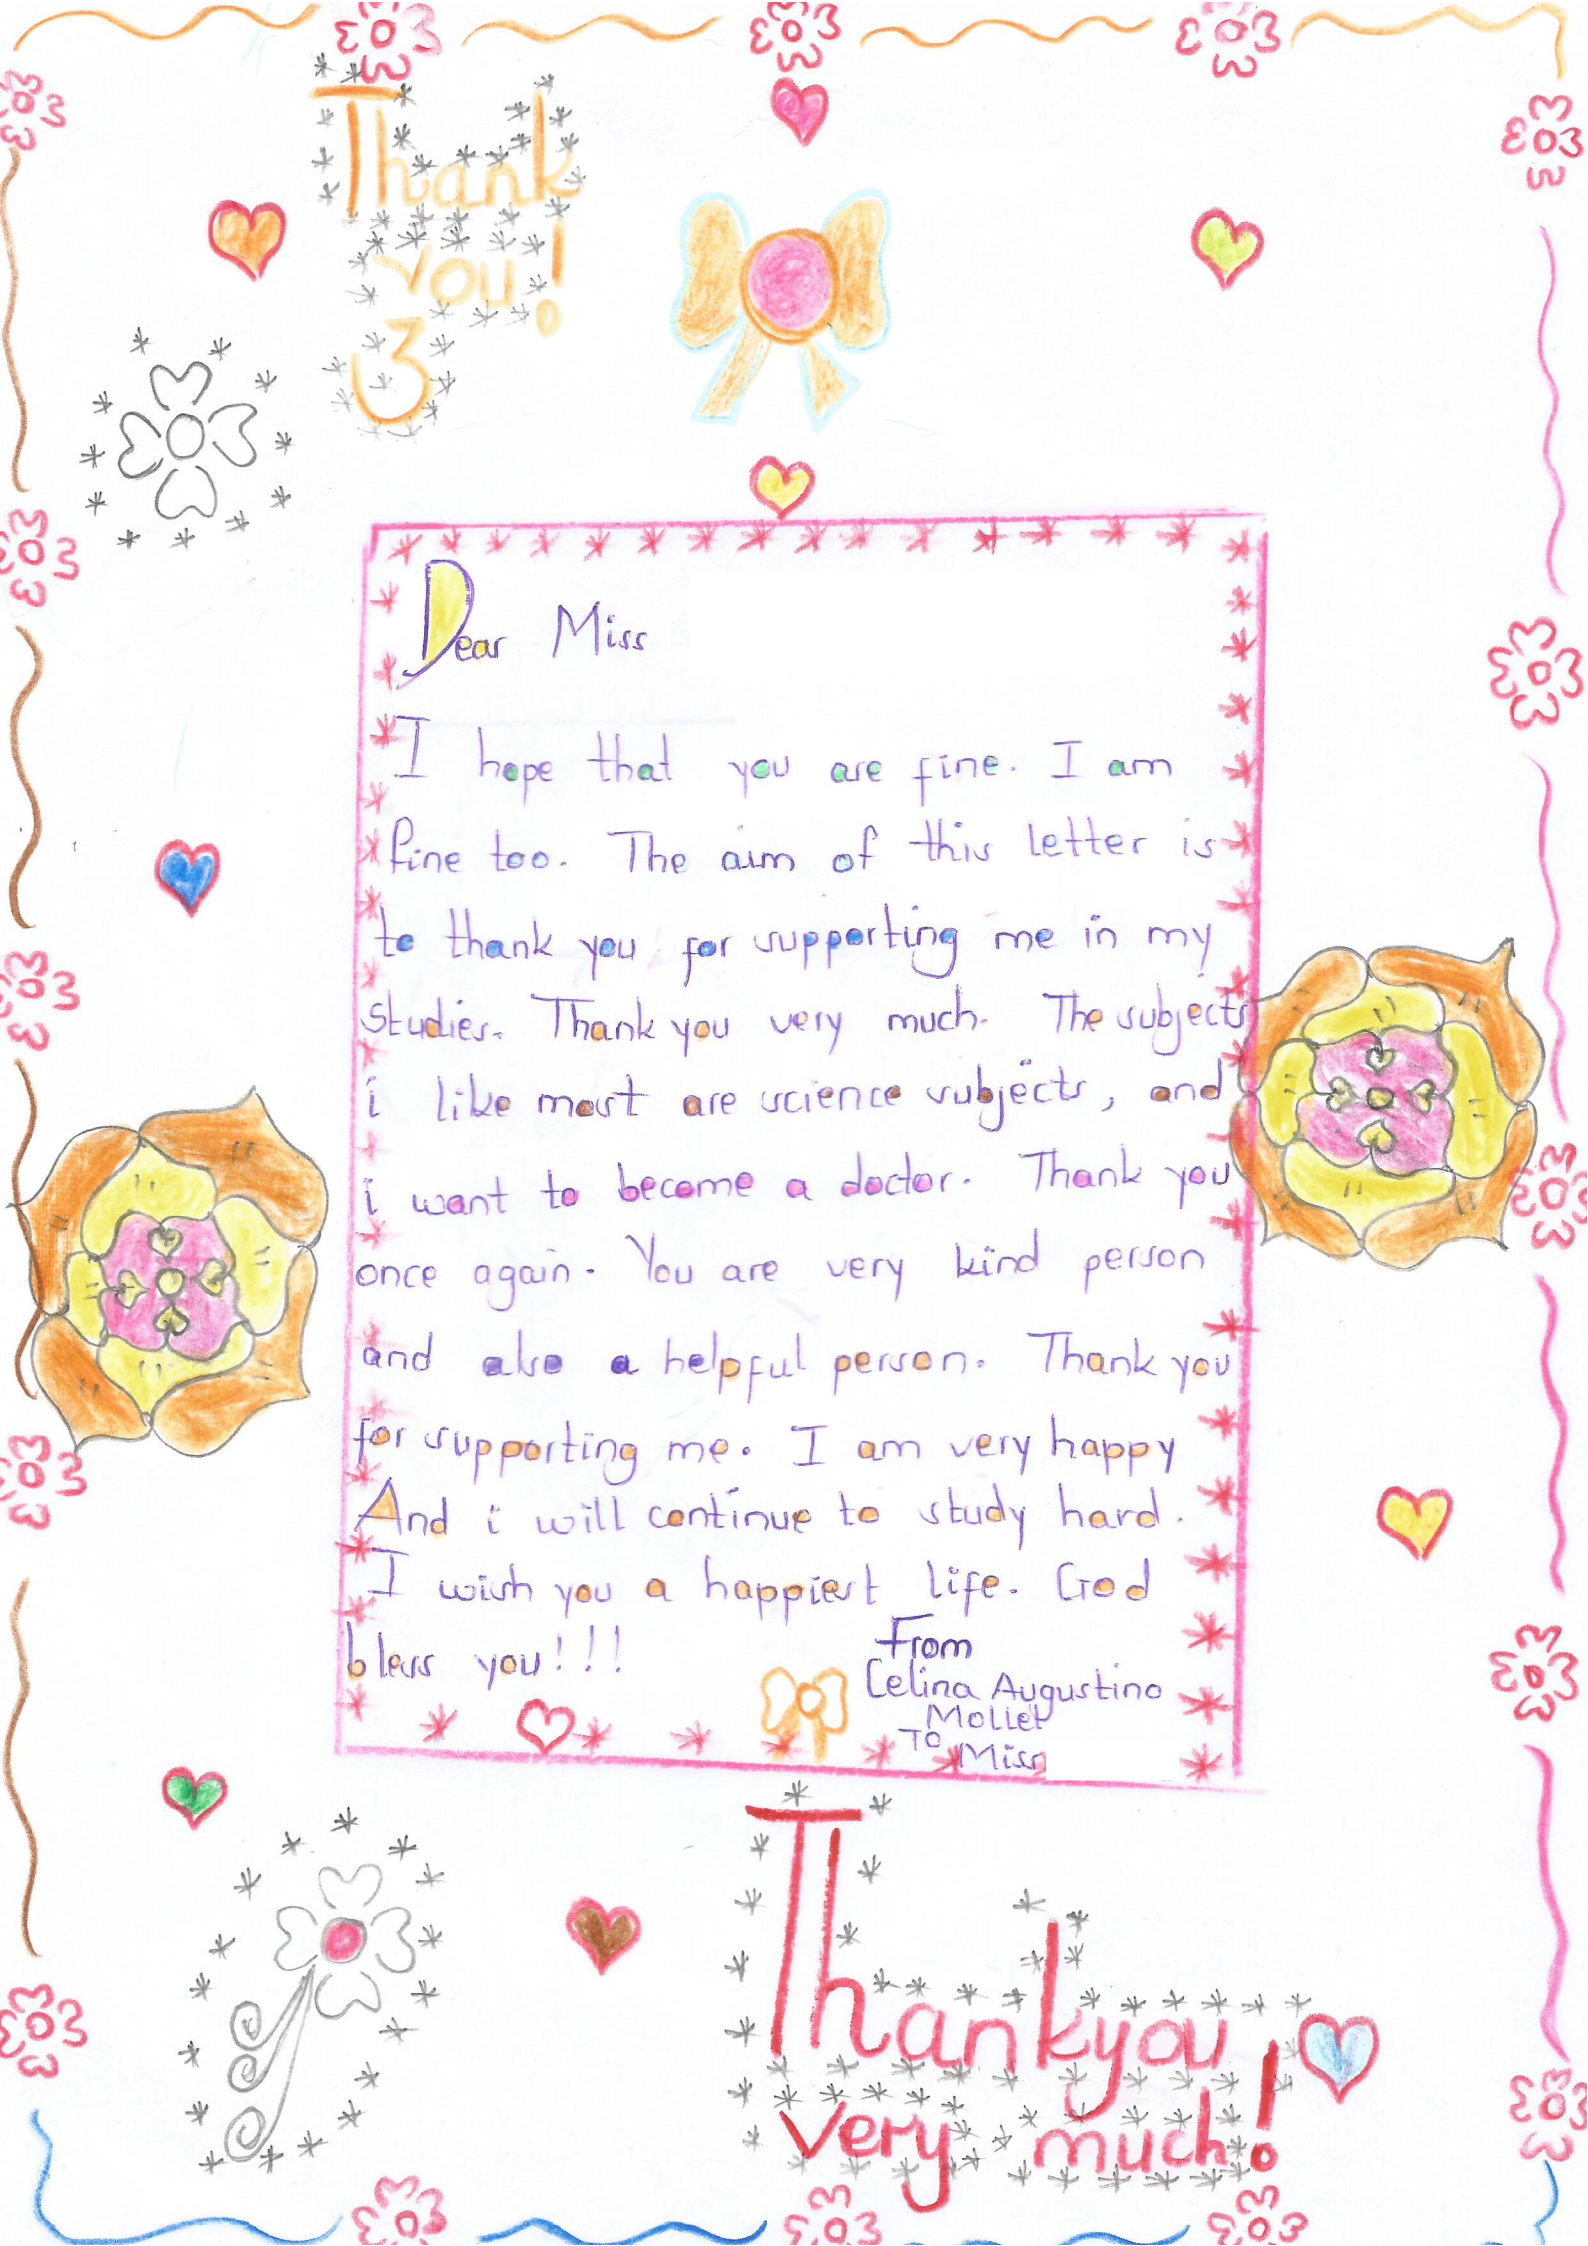 Thank
you!
Dear Miss
I hope that you are fine. I am
fine too. The aim of this letter is
to thank you for supporting me in my
studies. Thank you very much. The subjects
i like most are science subjects, and
i want to become a doctor. Thank you
once again. You are very kind person
and also a helpful person. Thank you
for supporting me. I am very happy
And i will continue to study hard.
I wish you a happiest life. God
bless you!!!
From
Celina Augustino
Mollel
TO
Miss
Thankyou
very much!